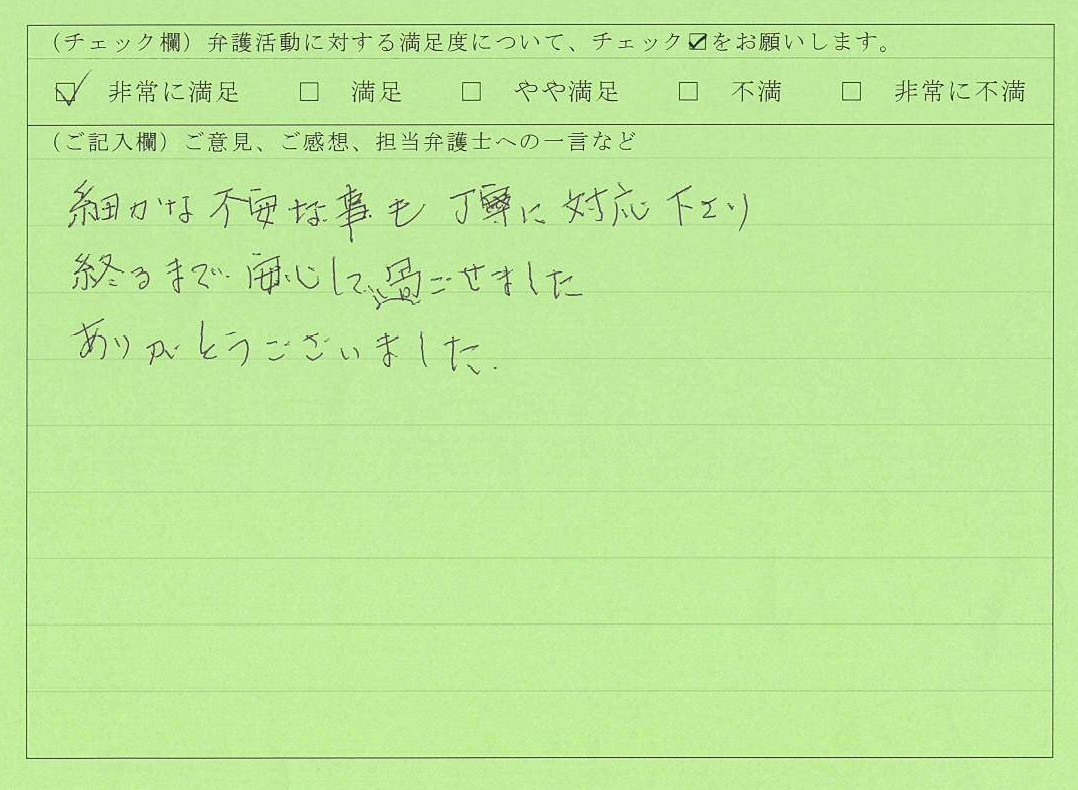 (チェック欄) 弁護活動に対する満足度について、チェック☑をお願いします。
☑ 非常に満足 □ 満足 □ やや満足 □ 不満 □ 非常に不満
(ご記入欄) ご意見、ご感想、担当弁護士への一言など
細かな不安な事も 丁寧に対応下さり
終るまで安心して過ごせました
ありがとうございました.